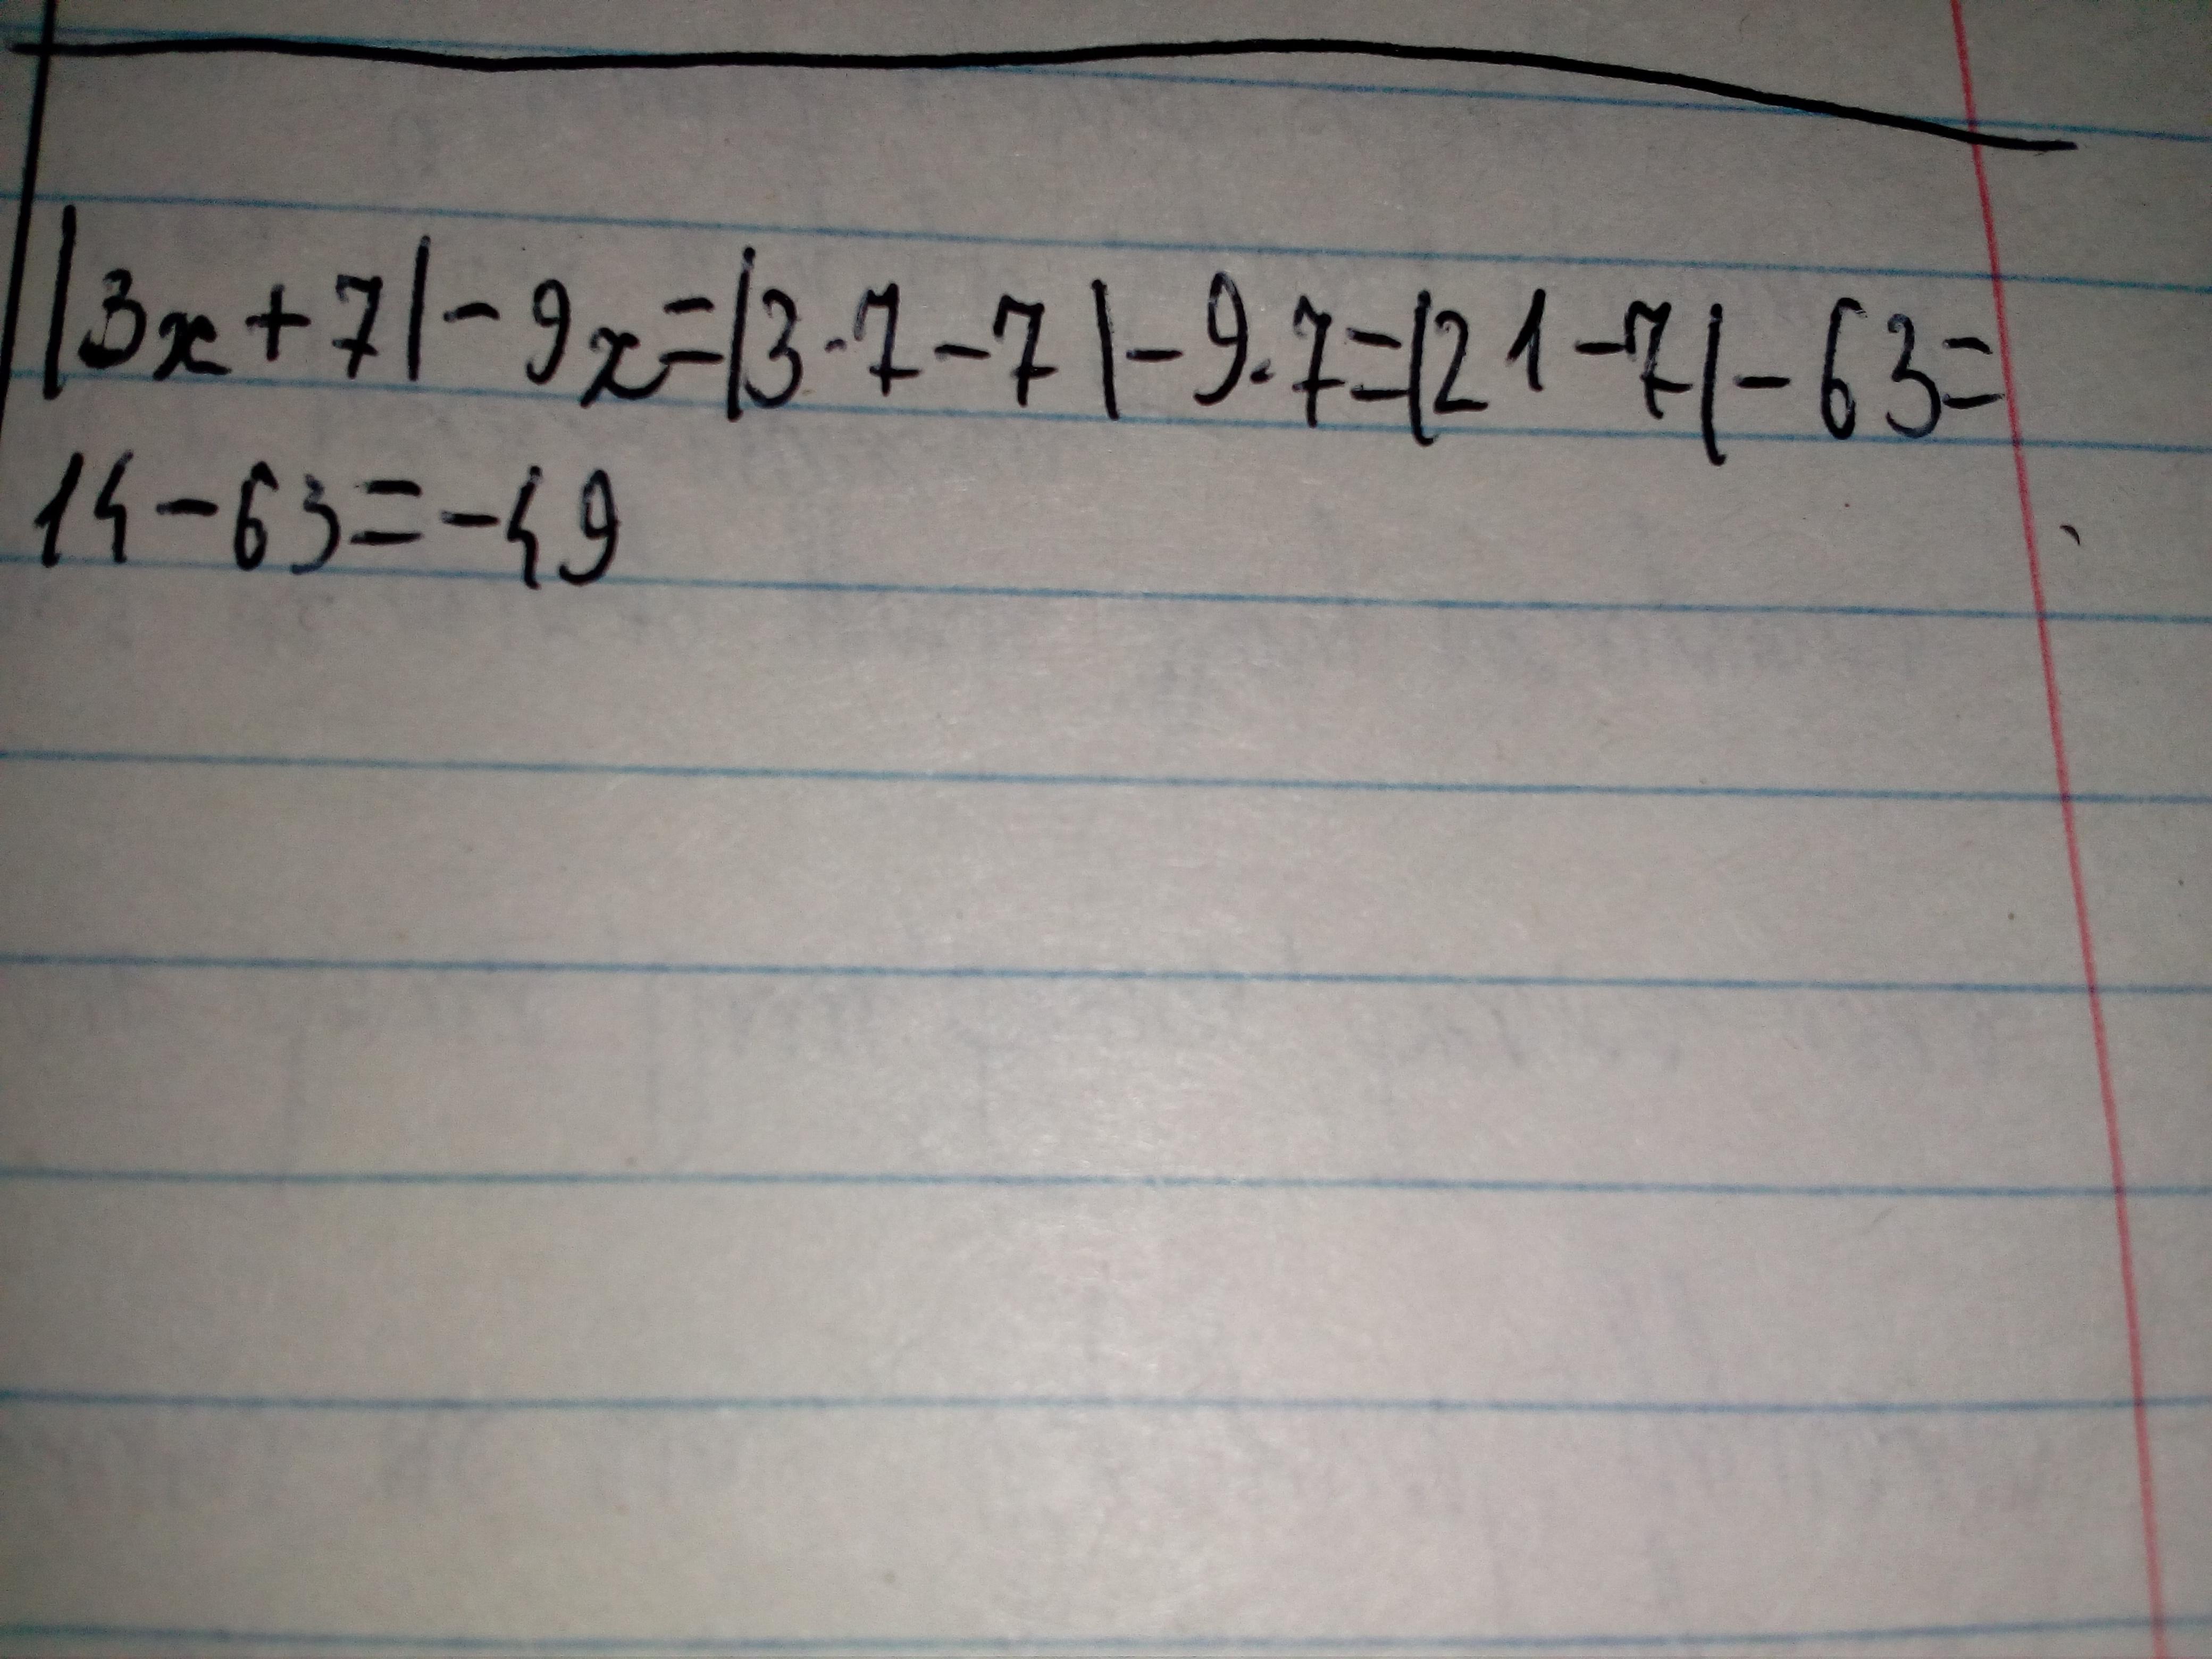 |3x+7|-9x=|3·7-7|-9·7=|21-7|-63=
14-63=-49